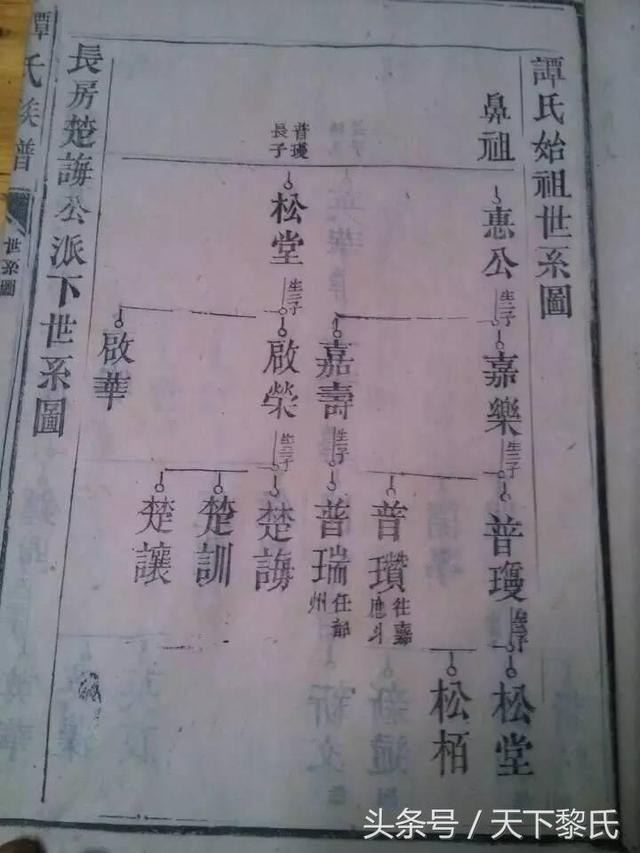 譚氏始祖世系圖
鼻祖
惠公
生二子
嘉樂
生二子
普瓊
生二子
松堂
松栢
普瓚
往嘉
應斗
嘉壽
生子
普瑞
任部
州
普瓊
長子
松堂
生二子
啟榮
生三子
楚誨
楚訓
楚讓
啟華
長房楚誨公派下世系圖
譚氏族譜
世系圖
头条号／天下黎氏